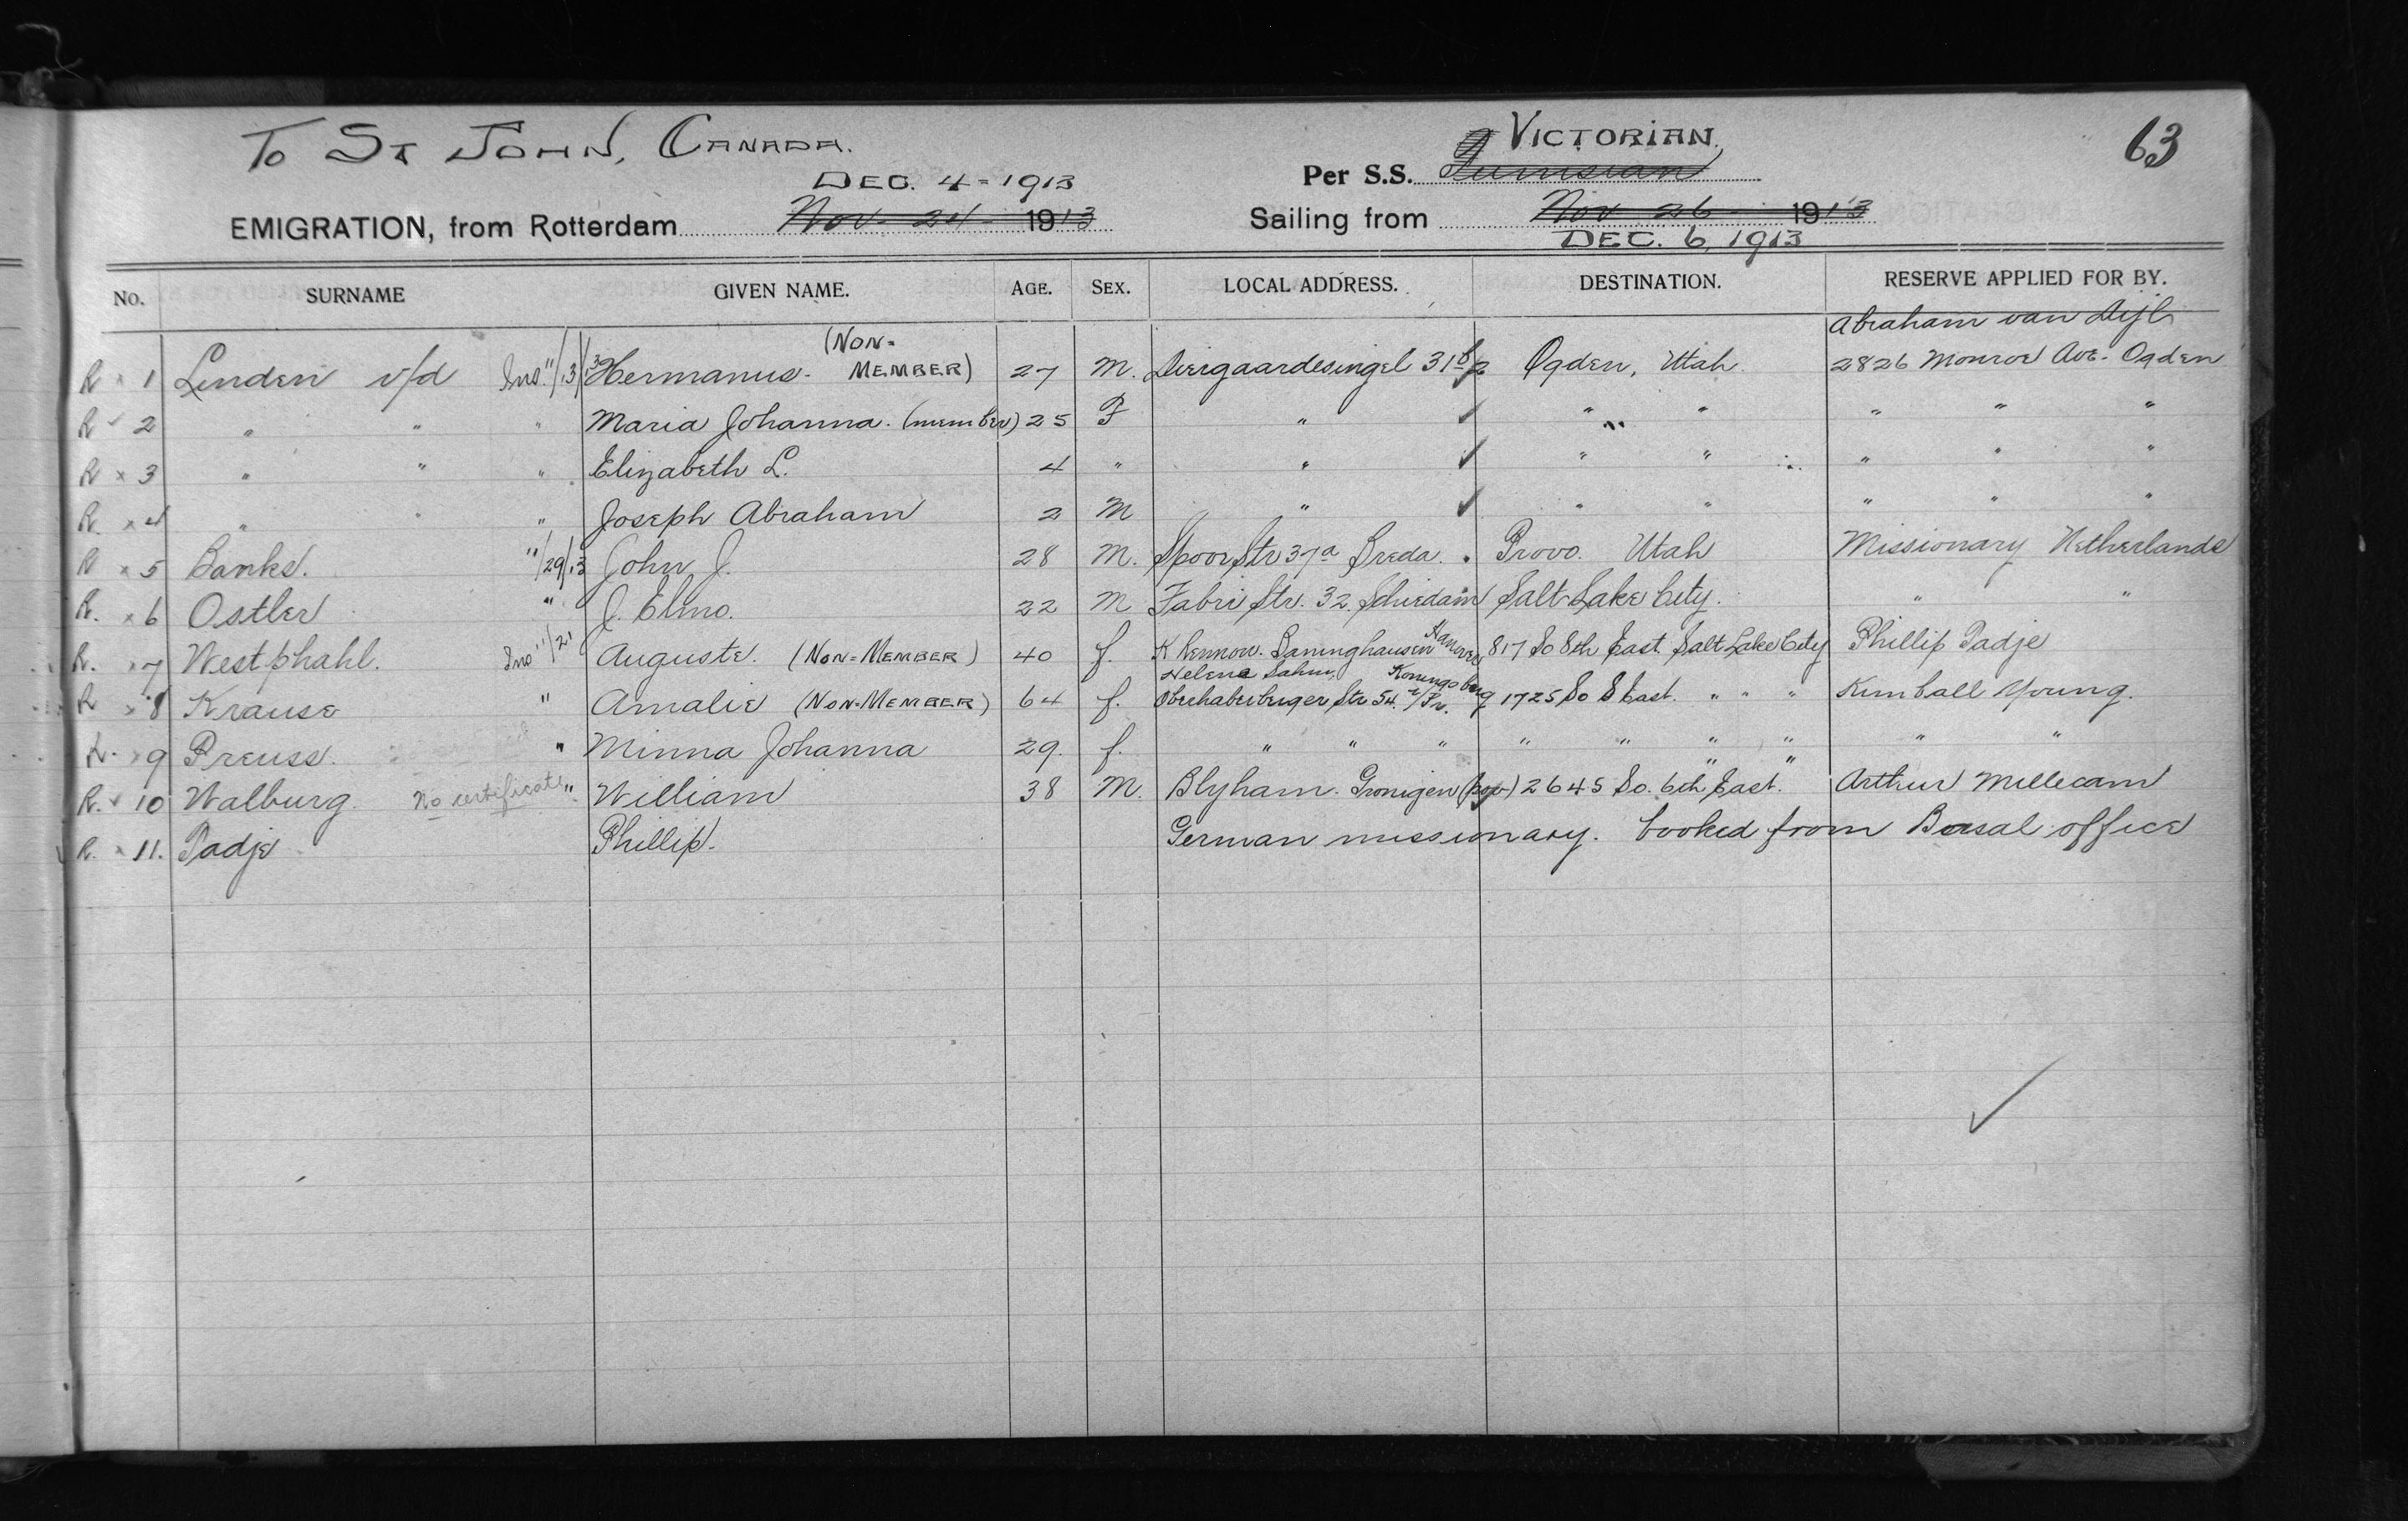 To St John, Canada.
63
Per S.S. Victorian. Tunisian
EMIGRATION, from Rotterdam Dec. 4 - 1913 Nov. 24 1913
Sailing from Nov 26 1913 Dec. 6, 1913
No. SURNAME GIVEN NAME. AGE. SEX. LOCAL ADDRESS. DESTINATION. RESERVE APPLIED FOR BY.
Abraham van Dijk
R x 1 Linden v/d Ins. 11/13/13 Hermanus. (Non-Member) 27 M. Diergaardesingel 31b Ogden, Utah 2826 Monroe Ave. Ogden
R 2 " " " Maria Johanna. (member) 25 F " ✓ " " " " "
R x 3 " " " Elizabeth L. 4 " " ✓ " " " " "
R. x 4 " " " Joseph Abraham 2 M " ✓ " " " " "
R x 5 Banks. 11/29/13 John J. 28 M. Spoor Str 37a Breda. Provo. Utah Missionary Netherlands
R. x 6 Ostler " J. Elmo. 22 M Fabri Str. 32. Schiedam Salt Lake City. " "
R. x 7 Westphahl. Ins 11/21 Auguste. (Non-Member) 40 f. K Rennow. Baninghausen Hanover 817 So 8th East. Salt Lake City Phillip Padje
R x 8 Krause " Amalie (Non-Member) 64 f. Helene Sahm, Konigsberg Oberhaberberger Str 54. i/Pr. 1725 So 8 East. " " " Kimball Young.
R. x 9 Preuss. " Minna Johanna 29. f. " " " " " " " " "
R. 10 Walburg. No certificate " William 38 M. Blyham. Gronigen 2645 So. 6th East. " " Arthur Millecam
R. x 11. Padje Phillip. German missionary. booked from Basal office